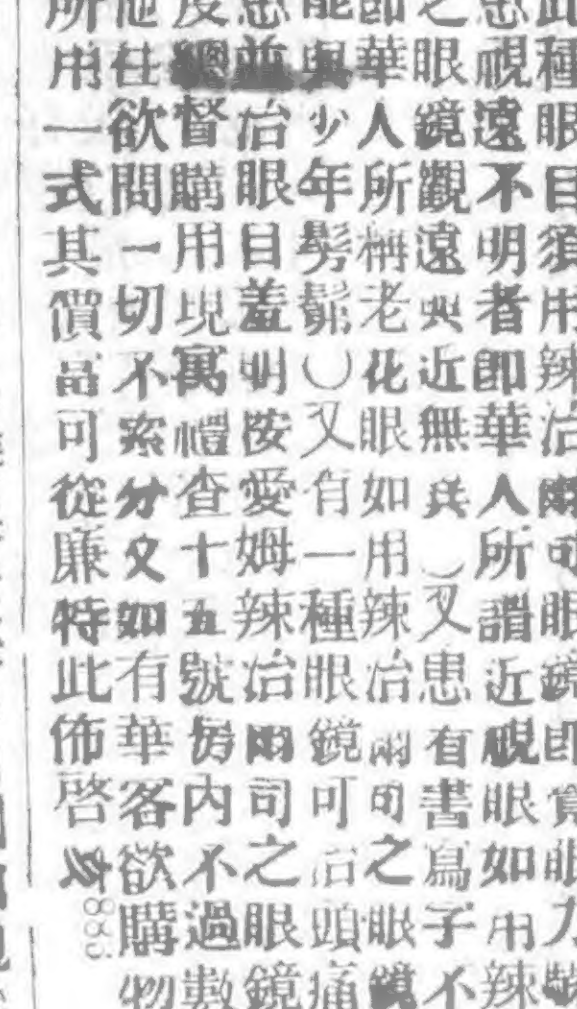 此種眼目須用辣治爾司眼鏡即賞眼力
患視遠不明者即華人所謂近視眼如用辣
之眼鏡觀遠與近無異 又患有書寫子不
即華人所稱老花眼如用辣治爾司之眼鏡
能與少年髣髴 又有一種眼鏡可治頭痛
患並治眼目羞明按愛姆辣治爾司之眼鏡
度總督購用現寓禮查十五號房內不過數
他住欲問一切不索分文如有華客欲購物
所用一式其價品可從廉特此佈啓